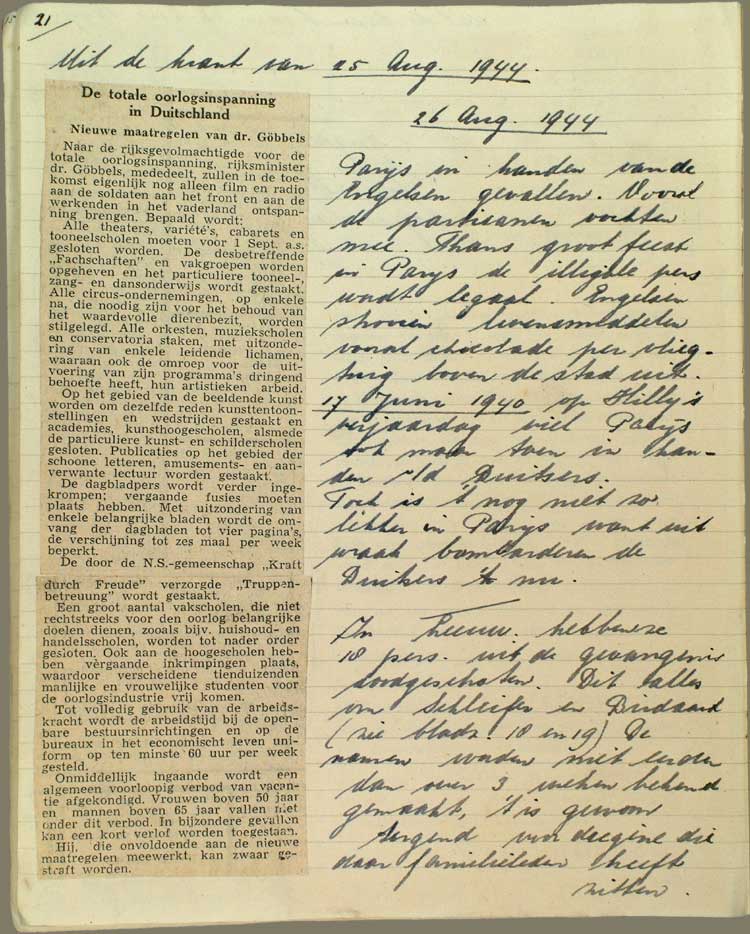 21
Uit de krant van 25 Aug. 1944.
De totale oorlogsinspanning
in Duitschland
Nieuwe maatregelen van dr. Göbbels
Naar de rijksgevolmachtigde voor de
totale oorlogsinspanning, rijksminister
dr. Göbbels, mededeelt, zullen in de toe-
komst eigenlijk nog alleen film en radio
aan de soldaten aan het front en aan de
werkenden in het vaderland ontspan-
ning brengen. Bepaald wordt:
Alle theaters, variété's, cabarets en
tooneelscholen moeten voor 1 Sept. a.s.
gesloten worden. De desbetreffende
„Fachschaften” en vakgroepen worden
opgeheven en het particuliere tooneel-,
zang- en dansonderwijs wordt gestaakt.
Alle circus-ondernemingen, op enkele
na, die noodig zijn voor het behoud van
het waardevolle dierenbezit, worden
stilgelegd. Alle orkesten, muziekscholen
en conservatoria staken, met uitzonde-
ring van enkele leidende lichamen,
waaraan ook de omroep voor de uit-
voering van zijn programma's dringend
behoefte heeft, hun artistieken arbeid.
Op het gebied van de beeldende kunst
worden om dezelfde reden kunsttentoon-
stellingen en wedstrijden gestaakt en
academies, kunsthoogescholen, alsmede
de particuliere kunst- en schilderscholen
gesloten. Publicaties op het gebied der
schoone letteren, amusements- en aan-
verwante lectuur worden gestaakt.
De dagbladpers wordt verder inge-
krompen; vergaande fusies moeten
plaats hebben. Met uitzondering van
enkele belangrijke bladen wordt de om-
vang der dagbladen tot vier pagina's,
de verschijning tot zes maal per week
beperkt.
De door de N.S.-gemeenschap „Kraft
durch Freude” verzorgde „Truppen-
betreuung” wordt gestaakt.
Een groot aantal vakscholen, die niet
rechtstreeks voor den oorlog belangrijke
doelen dienen, zooals bijv. huishoud- en
handelsscholen, worden tot nader order
gesloten. Ook aan de hoogescholen heb-
ben vèrgaande inkrimpingen plaats,
waardoor verscheidene tienduizenden
manlijke en vrouwelijke studenten voor
de oorlogsindustrie vrij komen.
Tot volledig gebruik van de arbeids-
kracht wordt de arbeidstijd bij de open-
bare bestuursinrichtingen en op de
bureaux in het economisch leven uni-
form op ten minste 60 uur per week
gesteld.
Onmiddellijk ingaande wordt een
algemeen voorloopig verbod van vacan-
tie afgekondigd. Vrouwen boven 50 jaar
en mannen boven 65 jaar vallen niet
onder dit verbod. In bijzondere gevallen
kan een kort verlof worden toegestaan.
Hij, die onvoldoende aan de nieuwe
maatregelen meewerkt, kan zwaar ge-
straft worden.
26 Aug. 1944
Parijs in handen van de
Engelsen gevallen. Vooral
de partisanen vochten
mee. Thans groot feest
in Parys de illigale pers
wordt legaal. Engelsen
strooien levensmiddelen
vooral chocolade per vlieg-
tuig boven de stad uit.
17 Juni 1940 op Hilly's
verjaardag viel Parijs
ook maar toen in han-
den v/d Duitsers.
Toch is 't nog niet zo
lekker in Parys want uit
wraak bombarderen de
Duitsers 't nu.
In Leeuw. hebben ze
18 pers. uit de gevangenis
doodgeschoten. Dit alles
om Schleifer en
(zie bladz. 18 en 19) De
namen worden niet eerder
dan over 3 weken bekend
gemaakt, 't is gewoon
tergend voor degene die
daar familieleden heeft
zitten.